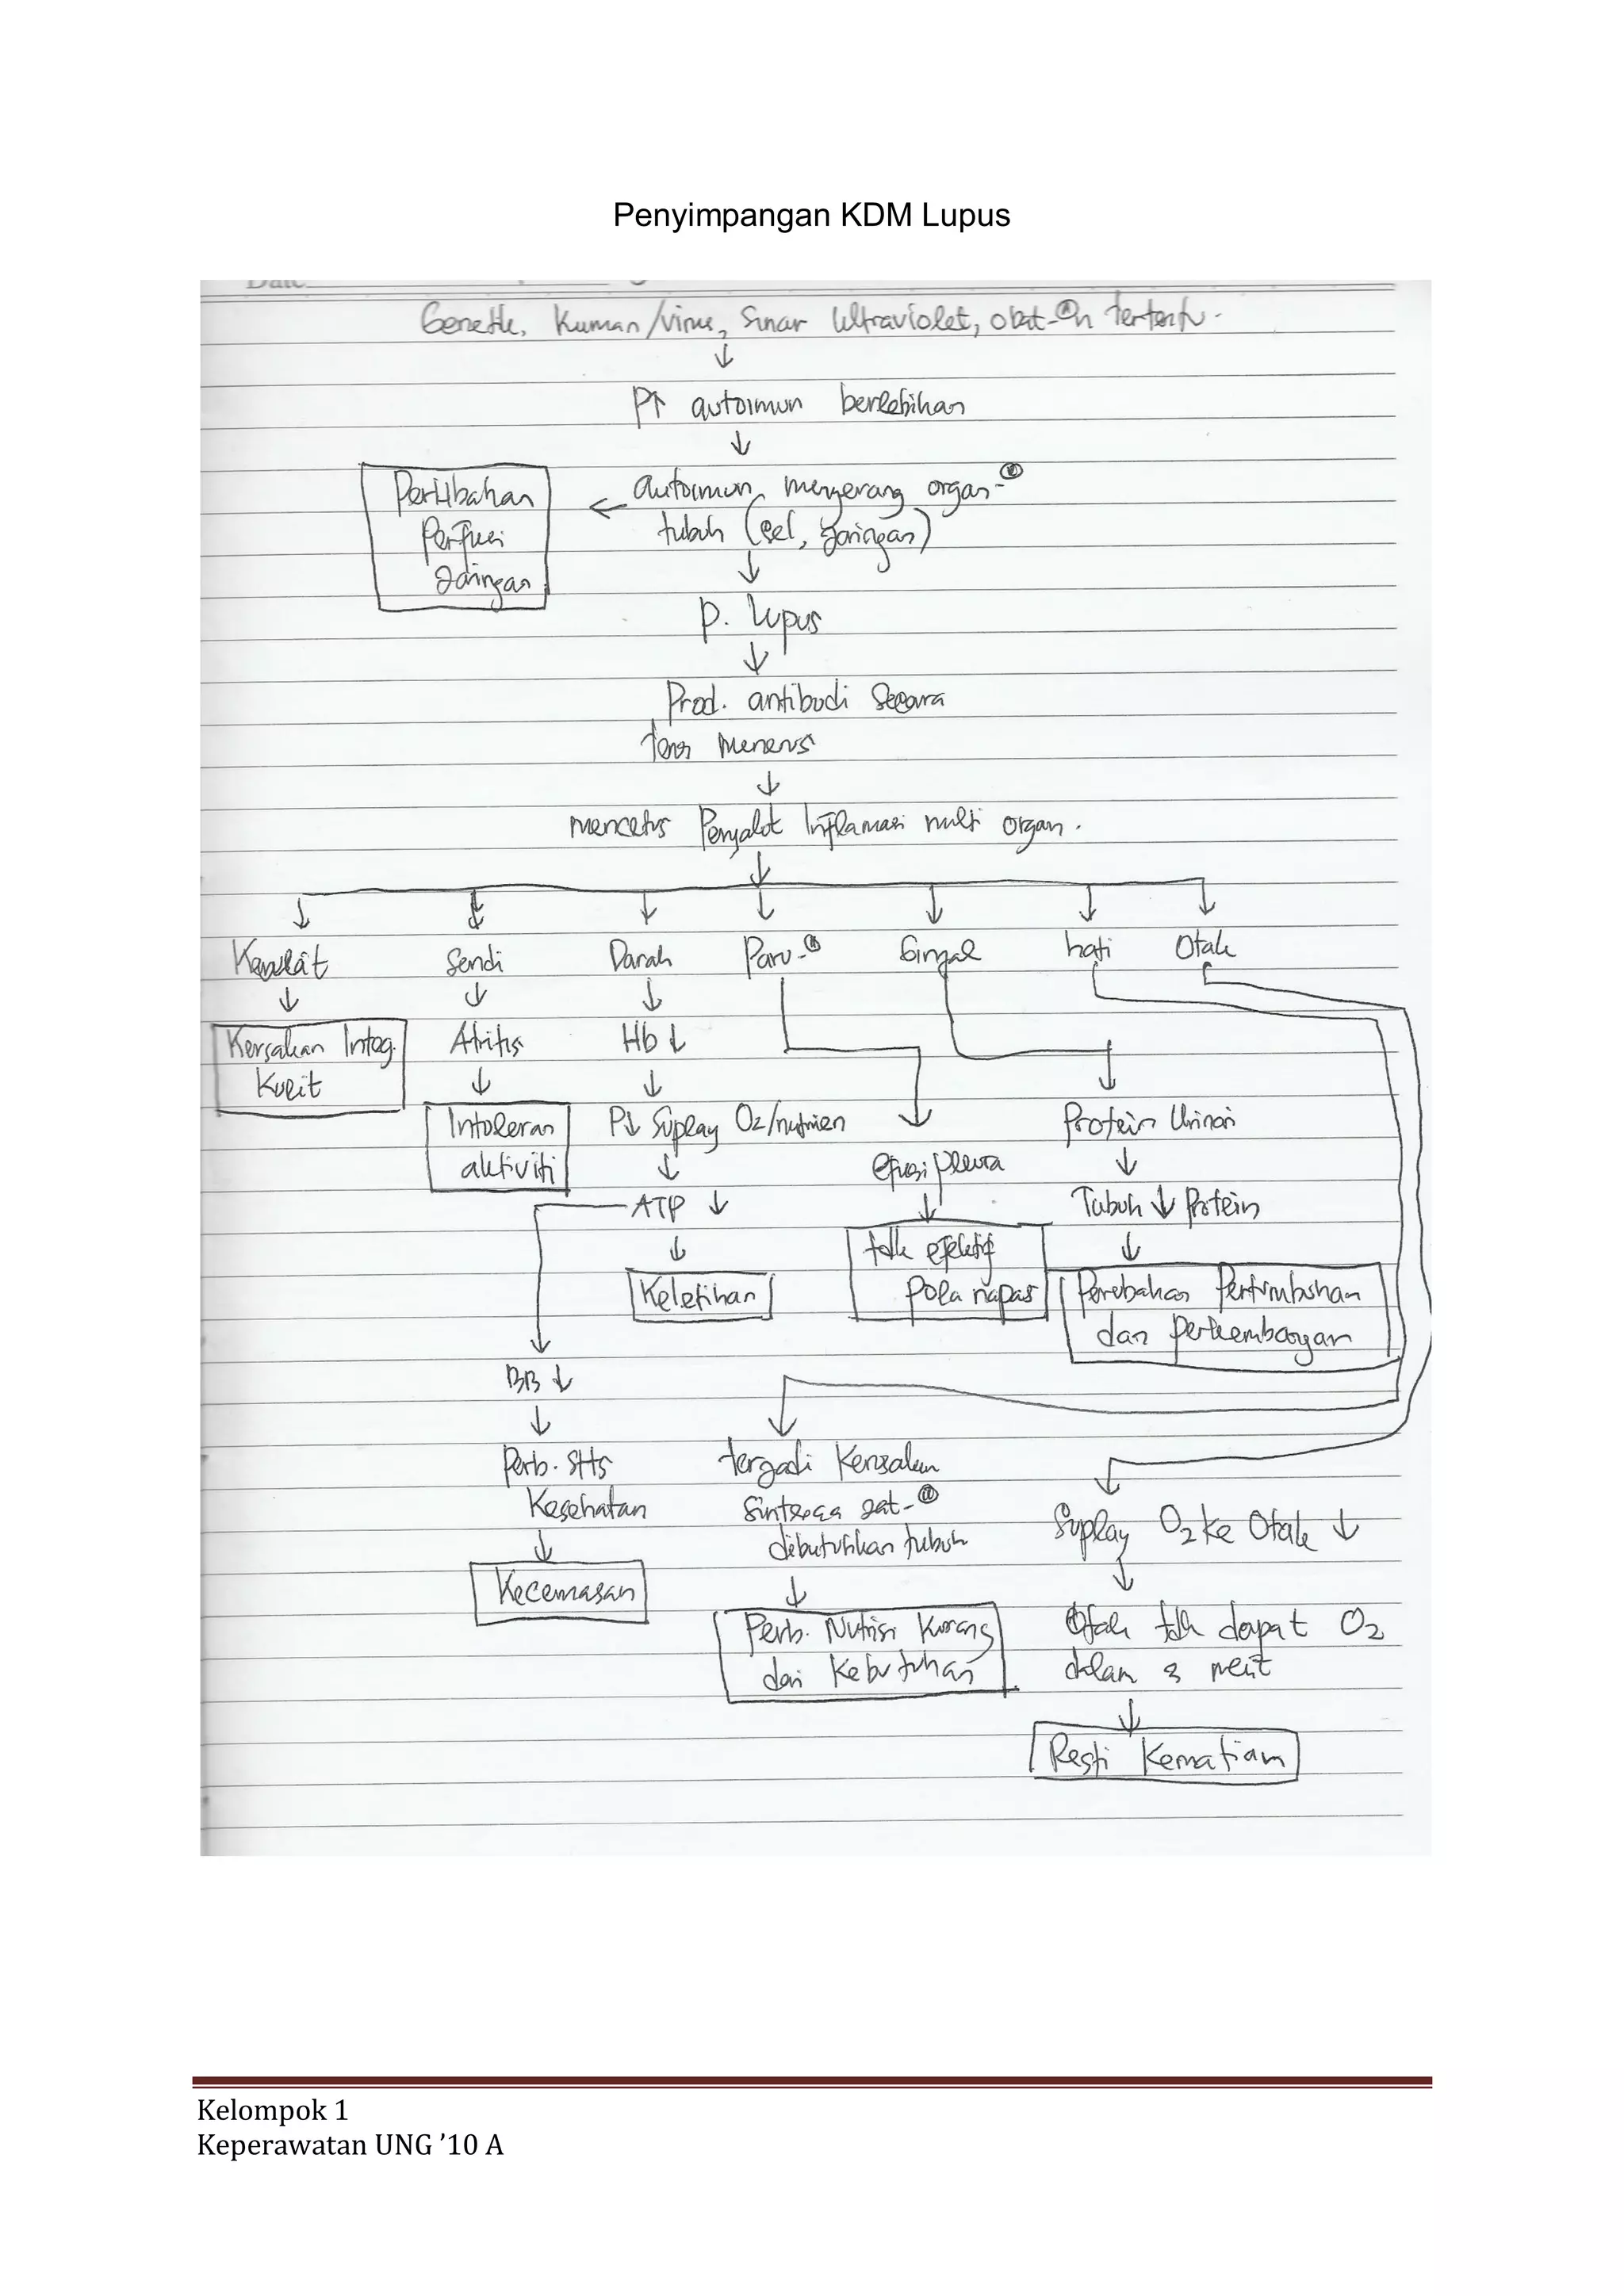 Penyimpangan KDM Lupus
Genetik, Kuman/virus, Sinar Ultraviolet, obat-an tertentu.
↓
P↑ autoimun berlebihan
↓
Perubahan
Perfusi
Jaringan
← autoimun menyerang organ-②
tubuh (sel, jaringan)
↓
P. lupus
↓
Prod. antibodi secara
terus menerus
↓
mencetus Penyakit Inflamasi multi organ.
↓
↓ ↓ ↓ ↓ ↓ ↓ ↓
Sendi Darah Paru-② Ginjal hati Otak
↓ ↓ ↓
Kerusakan Integ.
Kulit
Atritis Hb ↓
↓ ↓ ↓
Intoleran
aktiviti
P↓ Suplay O2/nutrien ↓ Protein Urinari
↓ efusi pleura ↓
ATP ↓ ↓ Tubuh ↓ Protein
↓ tdk efektif
pola napas
↓
Keletihan Perubahan Pertumbuhan
dan perkembangan
↓
BB ↓
↓ ↓
Perb. stts
Kesehatan
terjadi Kerusakan
sintesa zat-②
dibutuhkan tubuh
↓
↓ Suplay O2 ke Otak ↓
Kecemasan ↓ ↓
Perb. Nutrisi Kurang
dari Kebutuhan
Otak tdk dapat O2
dalam 3 menit
↓
Resti Kematian
Kelompok 1
Keperawatan UNG ’10 A